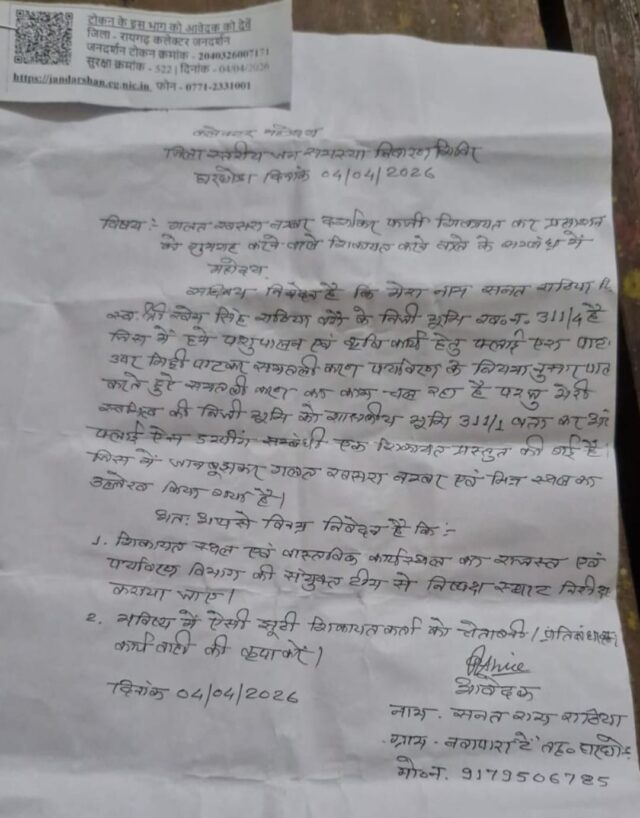 टोकन के इस भाग को आवेदक को देवें
जिला - रायगढ़ कलेक्टर जनदर्शन
जनदर्शन टोकन क्रमांक - 2040326007171
सुरक्षा क्रमांक - 522 | दिनांक - 04/04/2026
https://jandarshan.cg.nic.in फोन - 0771-2331001
कलेक्टर महोदय
जिला स्तरीय जन समस्या निवारण शिविर
दिनांक 04/04/2026
विषय :- गलत खसरा नम्बर फर्जी शिकायत कर प्रशासन
को गुमराह करने वाले शिकायत करने वाले के सम्बंध में
महोदय
सविनय निवेदन है कि मेरा नाम सनत राठिया
स्व. श्री सिंह राठिया के निजी भूमि ख.न. 311/4 है
जिस में हमें पशुपालन एवं कृषि कार्य हेतु फ्लाई एश पाट
उपर मिट्टी पाटकर समतली करण पर्यावरण के
करते हुए समतली करण का काम चल रहा है परन्तु मेरी
स्वामित्व की निजी भूमि को शासकीय भूमि 311/1 बता कर
फ्लाई ऐस डम्पींग सम्बंधी एक शिकायत प्रस्तुत की गई है।
जिस में जानबूझकर गलत खसरा नम्बर एवं भिन्न स्थल का
उल्लेख किया गया है।
अतः आप से विनम्र निवेदन है कि :-
1. शिकायत स्थल एवं वास्तविक कार्यस्थल का राजस्व एवं
पर्यावरण विभाग की संयुक्त टीम से निष्पक्ष
कराया जाए।
2. भविष्य में ऐसी झूठी शिकायतकर्ता को चेतावनी / प्रतिबंधात्मक
कार्यवाही की कृपा करें।
आवेदक
दिनांक 04/04/2026
नाम - सनत राम राठिया
ग्राम - नवापारा टें तह०
मो०न. 9179506785